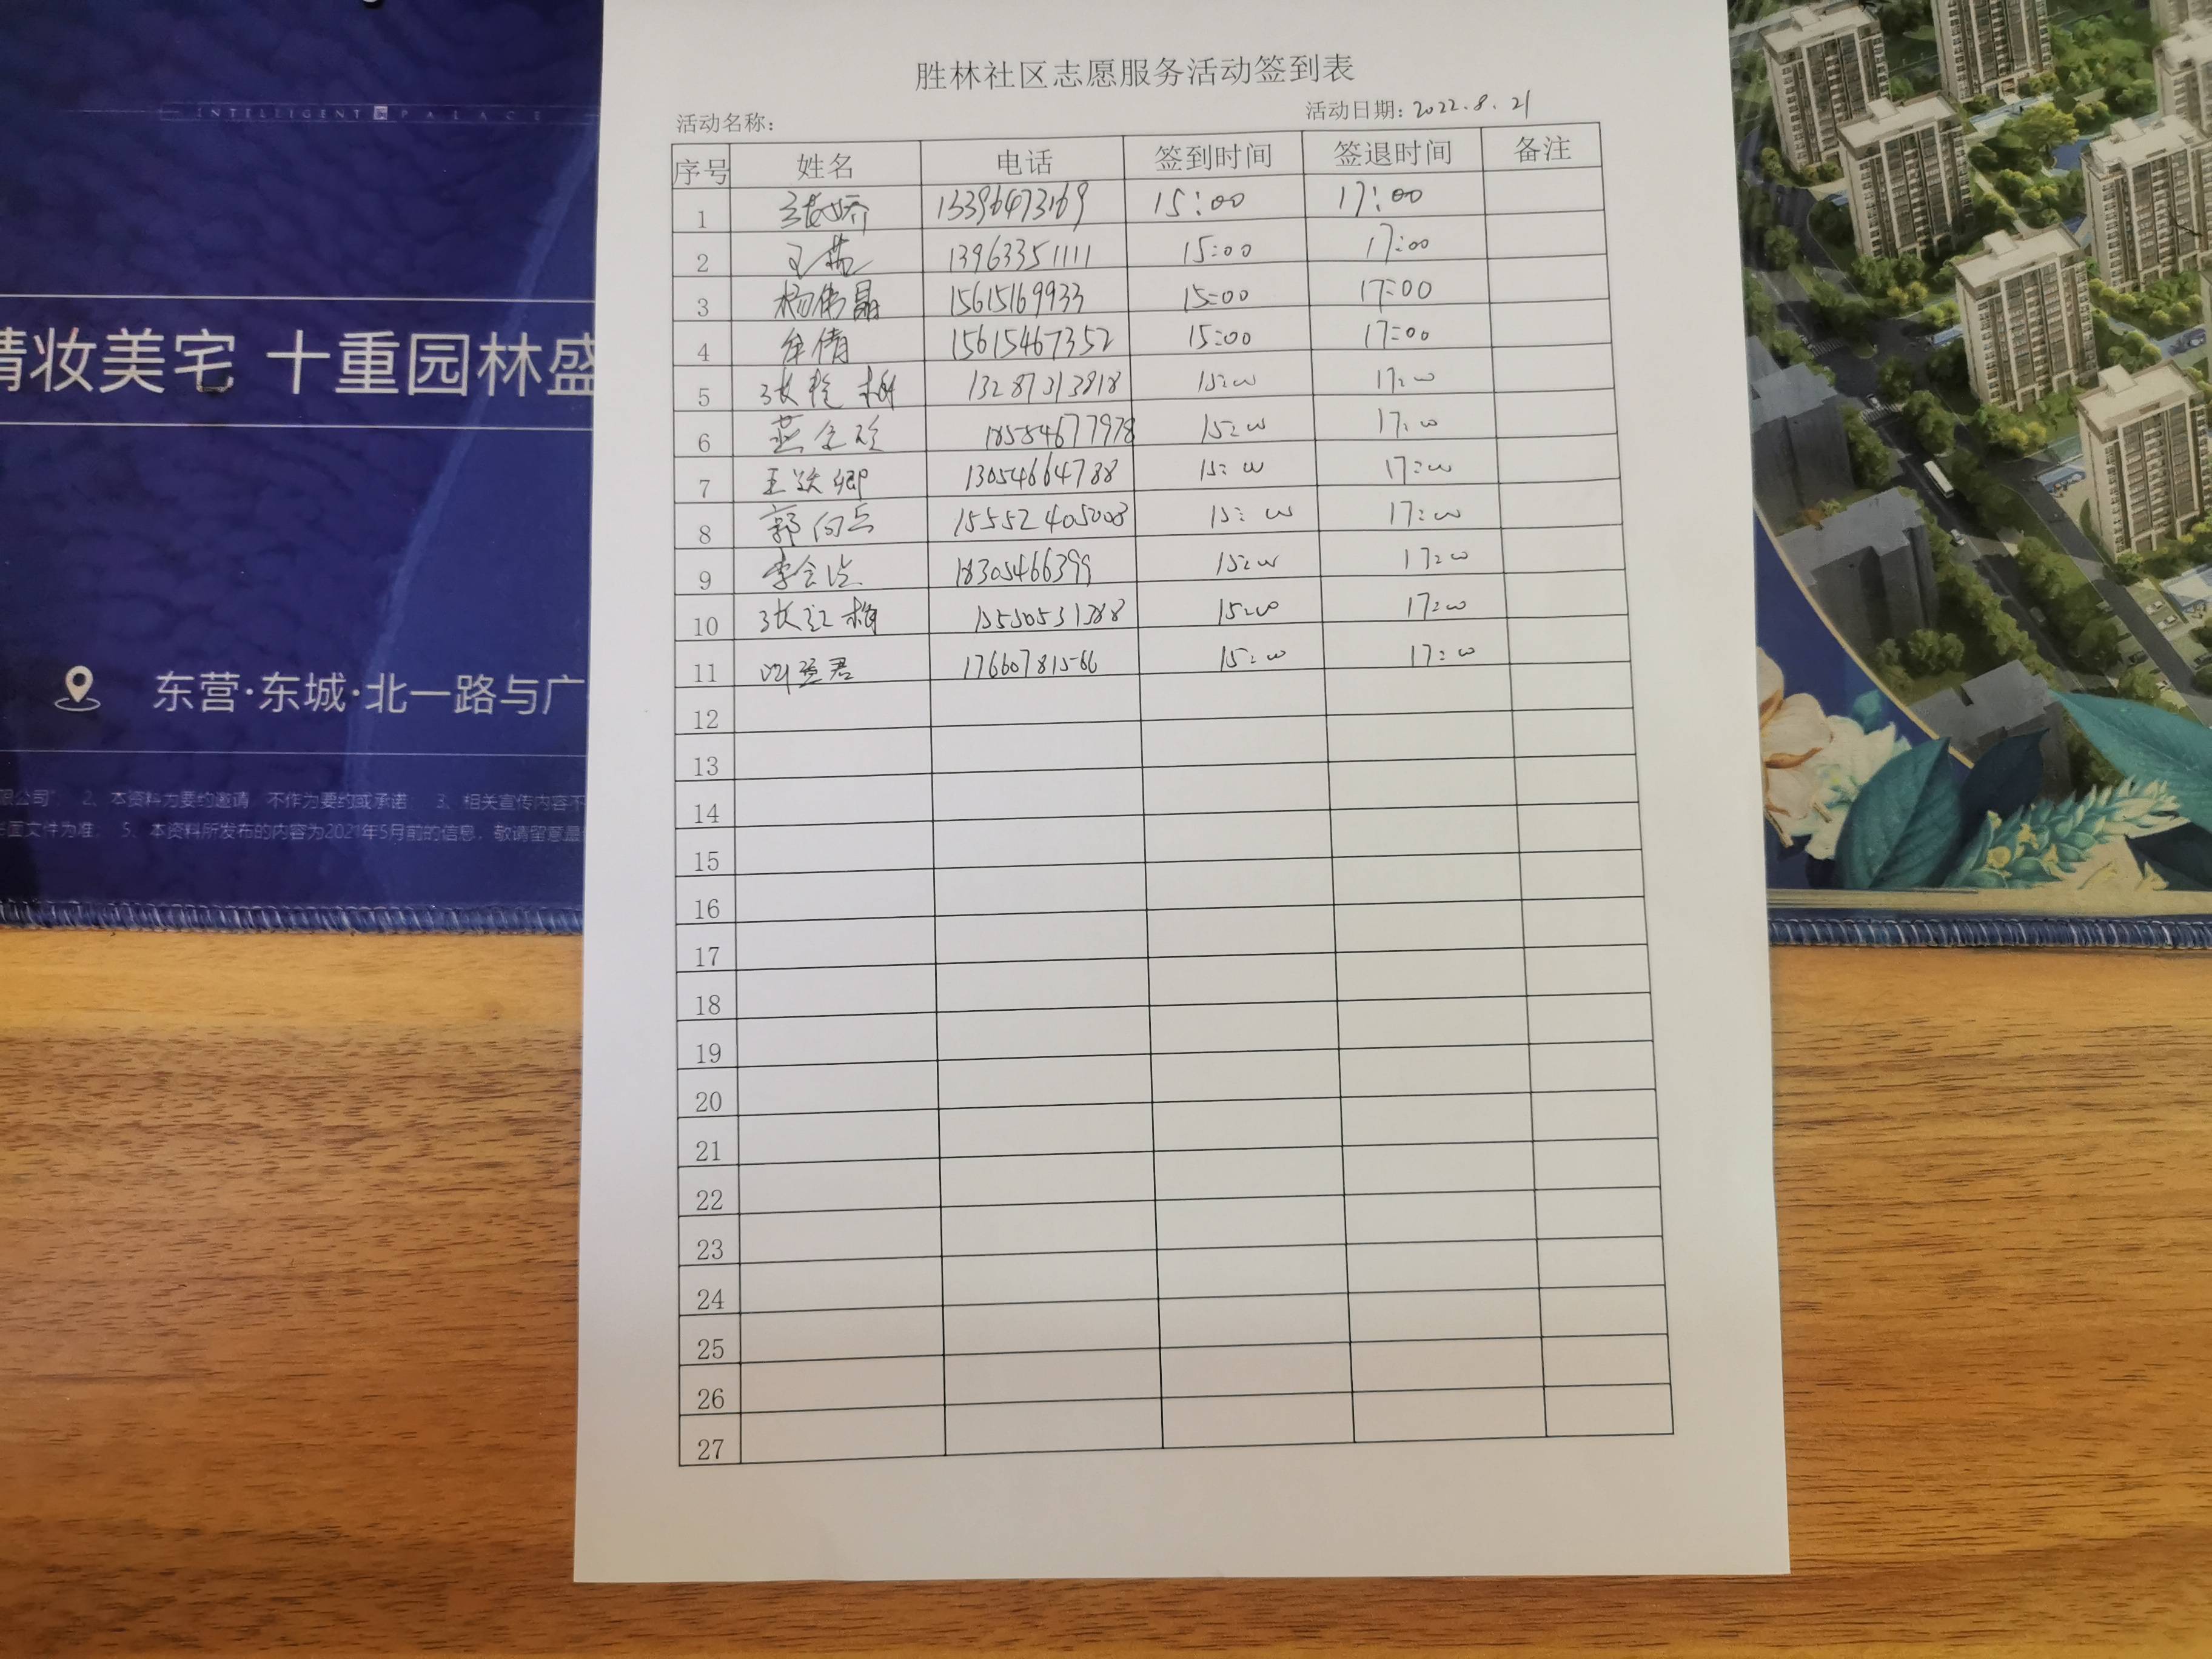 INTELLIGENT PALACE
精妆美宅 十重园林盛
东营·东城·北一路与广
限公司"; 2、本资料为要约邀请,不作为要约或承诺; 3、相关宣传内容不
文件为准; 5、本资料所发布的内容为2021年5月前的信息,敬请留意最
胜林社区志愿服务活动签到表
活动名称: 活动日期: 2022.8.21
序号 姓名 电话 签到时间 签退时间 备注
1 张娇 13396473169 15:00 17:00
2 王燕 13963351111 15:00 17:00
3 杨伟晶 15615169933 15:00 17:00
4 牟倩 15615467352 15:00 17:00
5 张 梅 13287313818 15:00 17:00
6 燕 18554677978 15:00 17:00
7 王 卿 13054664788 15:00 17:00
8 郭向 15552405008 15:00 17:00
9 李会 18305466399 15:00 17:00
10 张红梅 15:00 17:00
11 君 17660781566 15:00 17:00
12
13
14
15
16
17
18
19
20
21
22
23
24
25
26
27